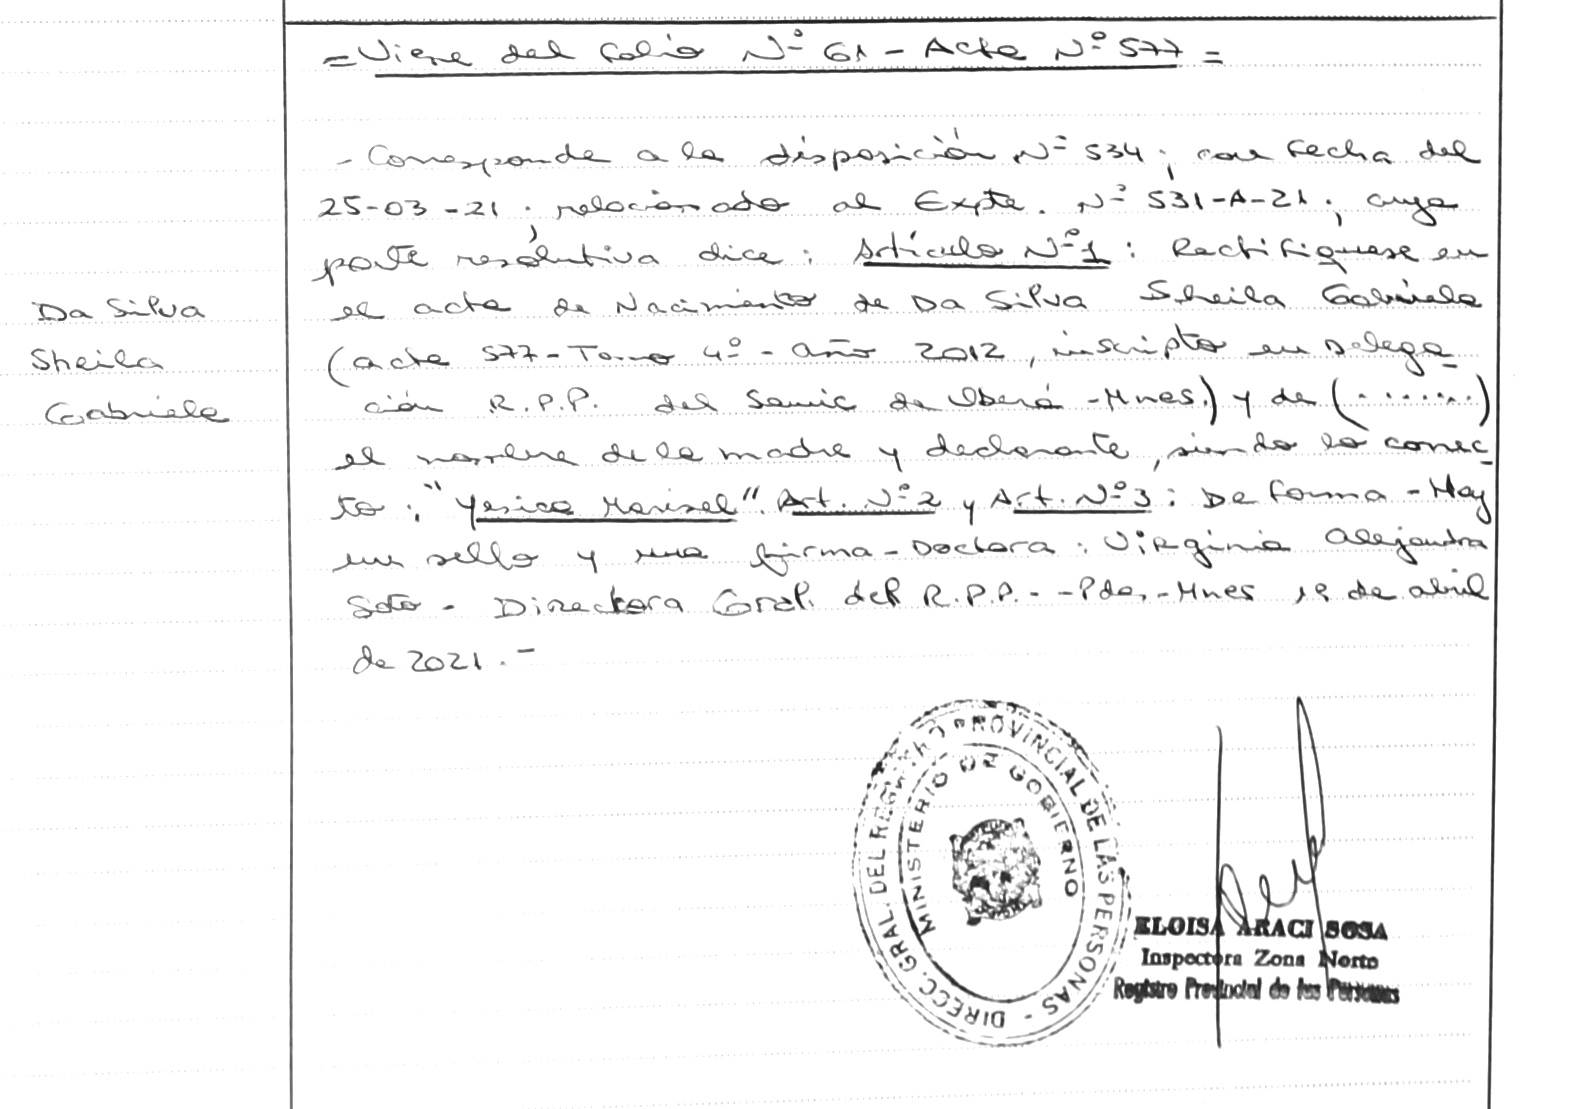 = Viene del folio Nº 61 - Acta Nº 577 =
- Corresponde a la disposición Nº 534; con fecha del
25-03-21; relacionado al Expte. Nº 531-A-21; cuya
parte resolutiva dice: Artículo Nº 1: Rectifiquese en
el acta de Nacimiento de Da Silva Sheila Gabriela
(acta 577-Tomo 4º - año 2012, inscripto en delega-
ción R.P.P. del Samic de Oberá -Mnes.) y de (.......)
el nombre de la madre y declarante, siendo lo correc-
to: "Yesica Marisel". Art. Nº 2 y Art. Nº 3: De forma - Hay
un sello y una firma - Doctora: Virginia Alejandra
Soto - Directora Gral. del R.P.P. - - Pdas, - Mnes de abril
de 2021.-
Da Silva
Sheila
Gabriela
DIRECC. GRAL. DEL REGISTRO PROVINCIAL DE LAS PERSONAS -
MINISTERIO DE GOBIERNO
ELOISA ARACI SOSA
Inspectora Zona Norte
Registro Provincial de las Personas